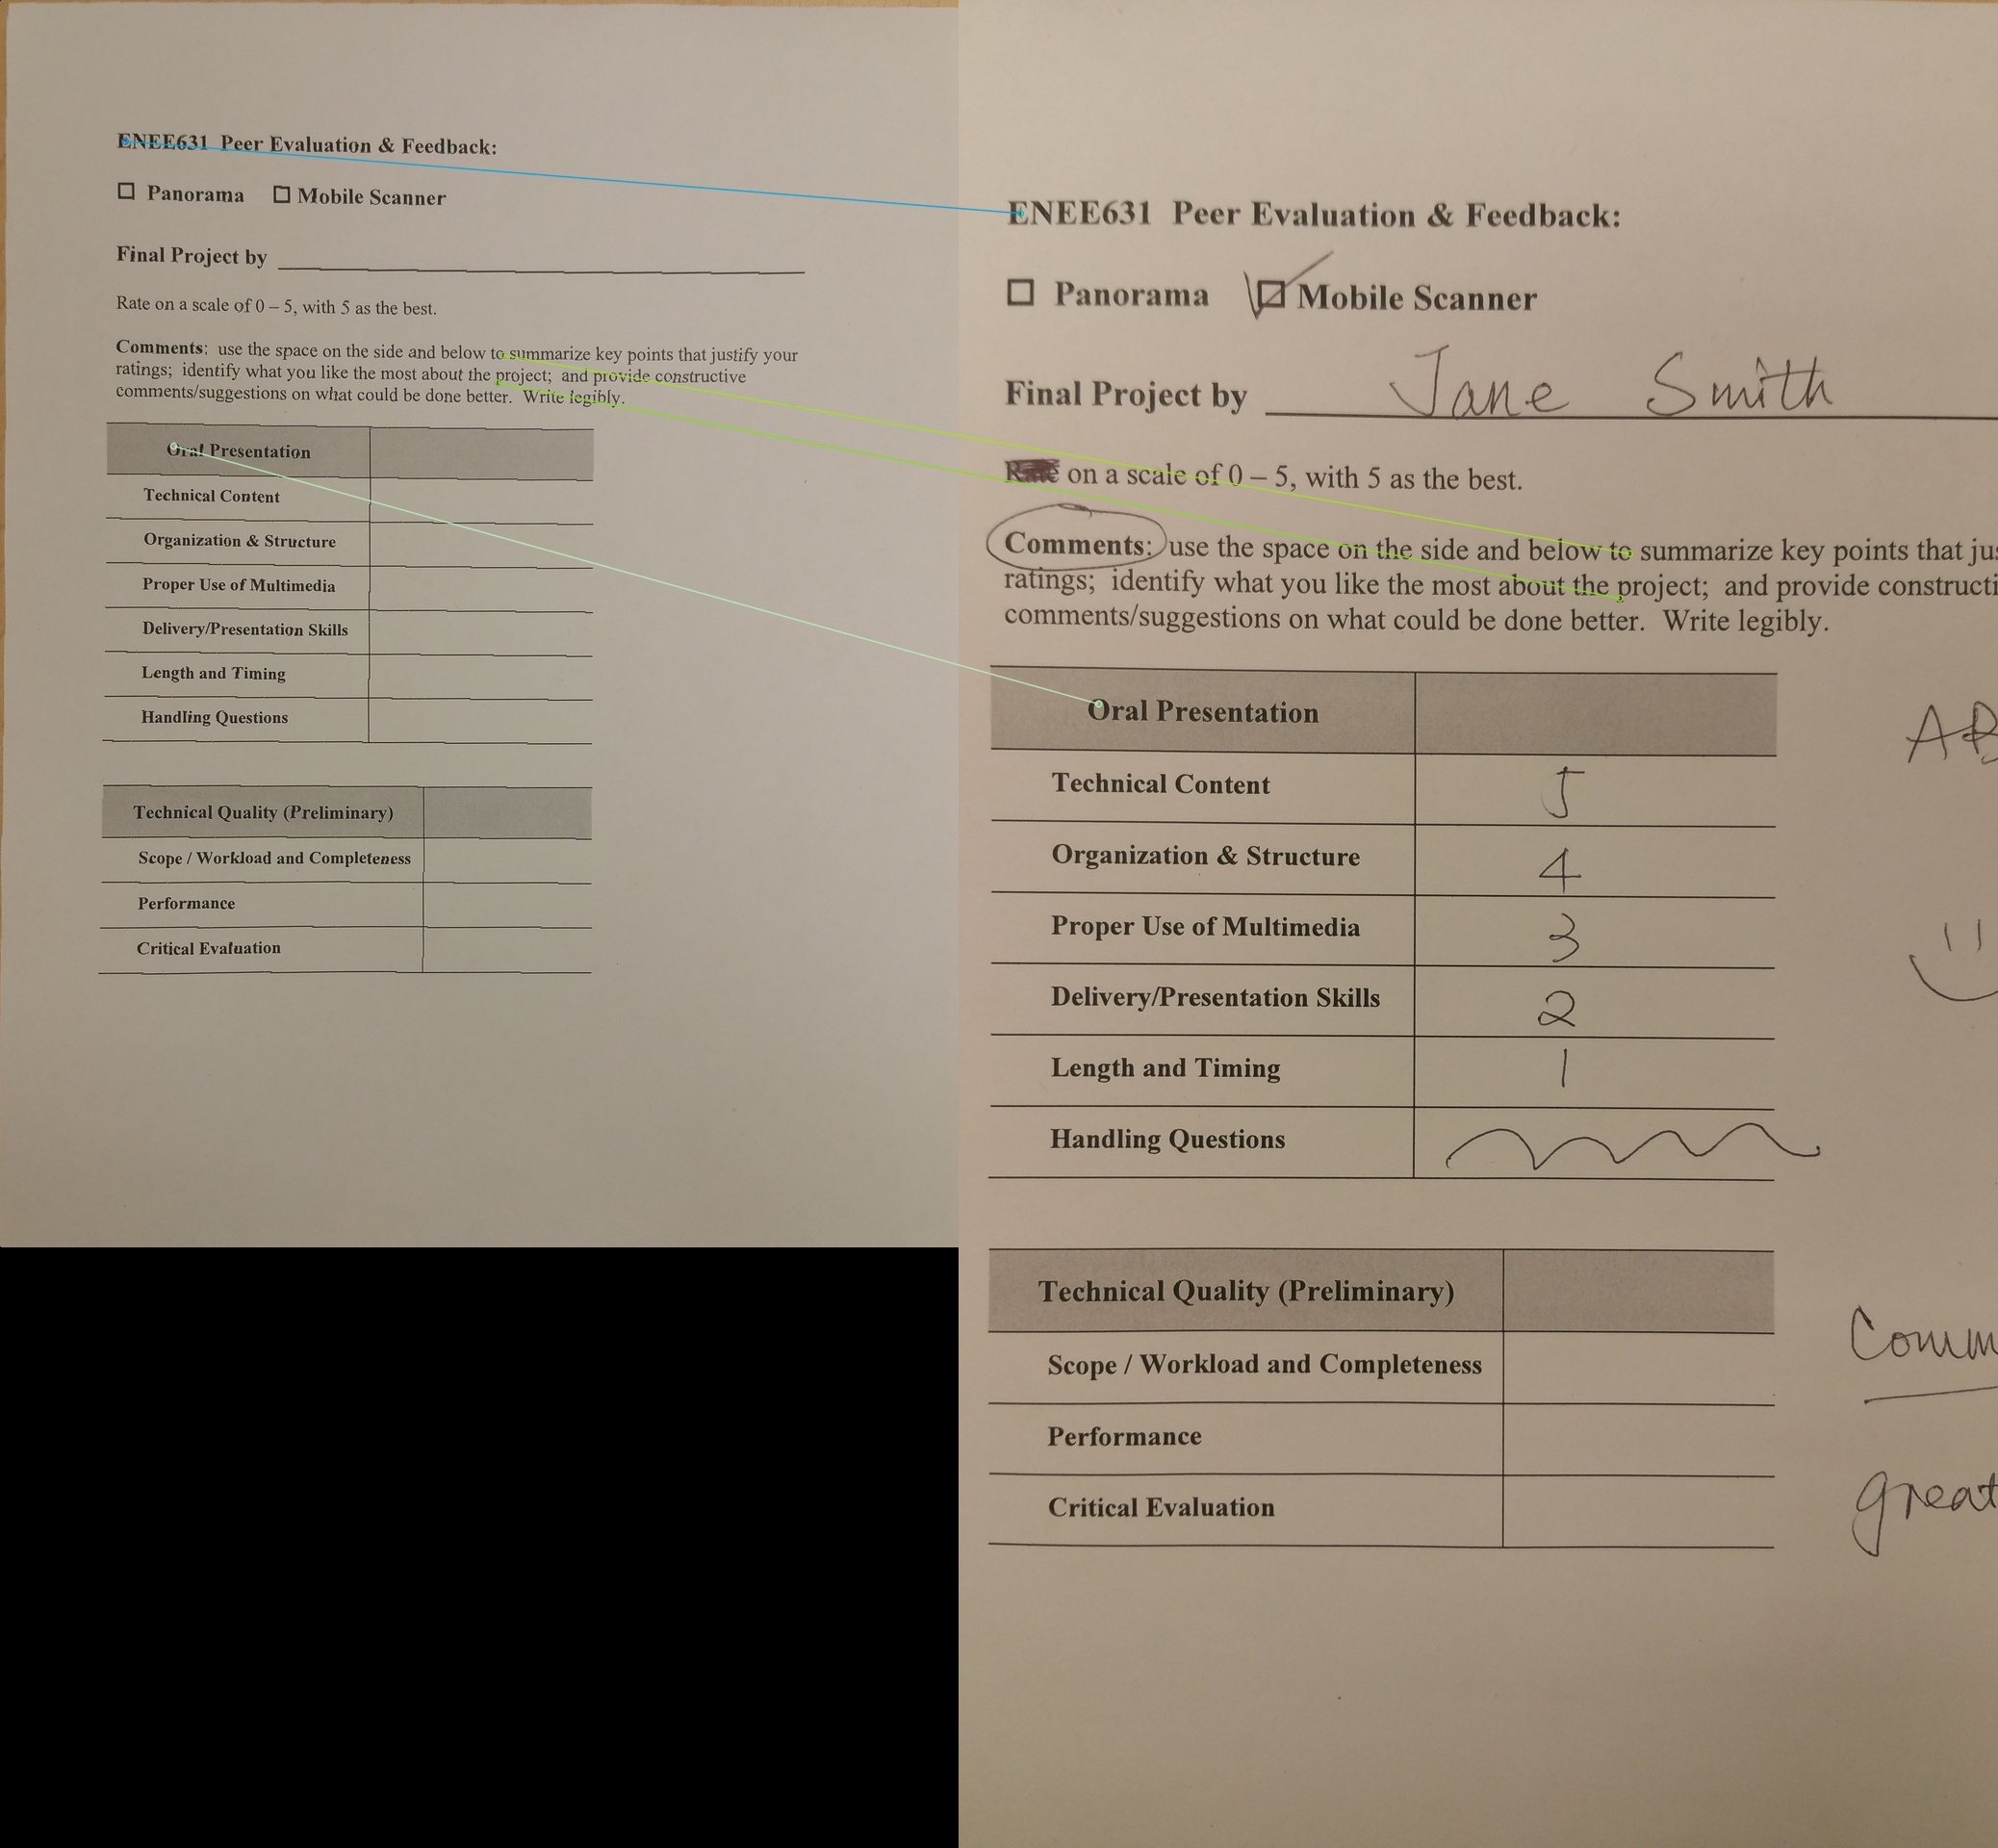 ENEE631 Peer Evaluation & Feedback:
Panorama Mobile Scanner
Final Project by
Rate on a scale of 0 – 5, with 5 as the best.
Comments: use the space on the side and below to summarize key points that justify your
ratings; identify what you like the most about the project; and provide constructive
comments/suggestions on what could be done better. Write legibly.
Oral Presentation
Technical Content
Organization & Structure
Proper Use of Multimedia
Delivery/Presentation Skills
Length and Timing
Handling Questions
Technical Quality (Preliminary)
Scope / Workload and Completeness
Performance
Critical Evaluation
ENEE631 Peer Evaluation & Feedback:
Panorama Mobile Scanner
Final Project by Jane Smith
on a scale of 0 – 5, with 5 as the best.
Comments: use the space on the side and below to summarize key points that jus
ratings; identify what you like the most about the project; and provide constructi
comments/suggestions on what could be done better. Write legibly.
Oral Presentation
Technical Content 5
Organization & Structure 4
Proper Use of Multimedia 3
Delivery/Presentation Skills 2
Length and Timing 1
Handling Questions
Technical Quality (Preliminary)
Comm
Scope / Workload and Completeness
Performance
Critical Evaluation
great